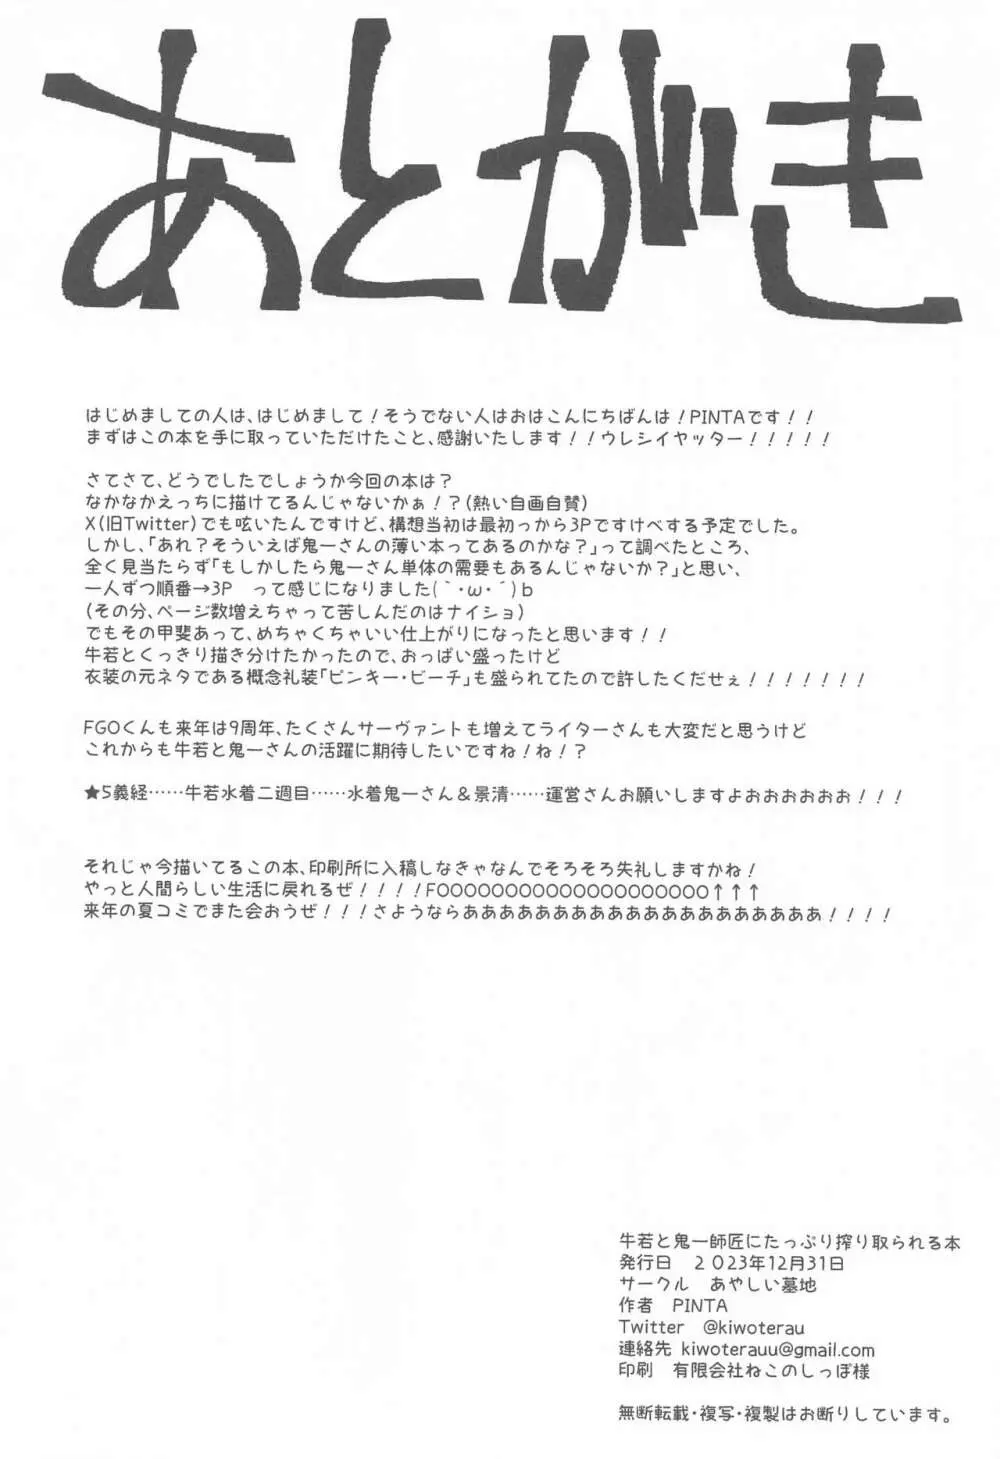 あとがき
はじめましての人は、はじめまして！そうでない人はおはこんにちばんは！PINTAです！！
まずはこの本を手に取っていただけたこと、感謝いたします！！ウレシイヤッター！！！！！
さてさて、どうでしたでしょうか今回の本は？
なかなかえっちに描けてるんじゃないかぁ！？(熱い自画自賛)
X(旧Twitter)でも呟いたんですけど、構想当初は最初っから3Pですけべする予定でした。
しかし、「あれ？そういえば鬼一さんの薄い本ってあるのかな？」って調べたところ、
全く見当たらず「もしかしたら鬼一さん単体の需要もあるんじゃないか？」と思い、
一人ずつ順番→3P　って感じになりました(｀・ω・´)b
(その分、ページ数増えちゃって苦しんだのはナイショ)
でもその甲斐あって、めちゃくちゃいい仕上がりになったと思います！！
牛若とくっきり描き分けたかったので、おっぱい盛ったけど
衣装の元ネタである概念礼装「ピンキー・ビーチ」も盛られてたので許したくだせぇ！！！！！！！
FGOくんも来年は9周年、たくさんサーヴァントも増えてライターさんも大変だと思うけど
これからも牛若と鬼一さんの活躍に期待したいですね！ね！？
★5義経……牛若水着二週目……水着鬼一さん＆景清……運営さんお願いしますよおおおおおお！！！
それじゃ今描いてるこの本、印刷所に入稿しなきゃなんでそろそろ失礼しますかね！
やっと人間らしい生活に戻れるぜ！！！！FOOOOOOOOOOOOOOOOOOOO↑↑↑
来年の夏コミでまた会おうぜ！！！さようならああああああああああああああああああああ！！！！
牛若と鬼一師匠にたっぷり搾り取られる本
発行日　2023年12月31日
サークル　あやしい墓地
作者　PINTA
Twitter　@kiwoterau
連絡先 kiwoterauu@gmail.com
印刷　有限会社ねこのしっぽ様
無断転載・複写・複製はお断りしています。